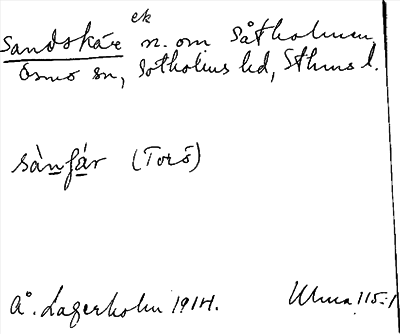 ek
Sandskär n. om Såtholmen,
Ösmo sn, Sotholms hd, Sthms l.
sànfár (Torö)
Å. Lagerholm 1914. Ulma 115:1